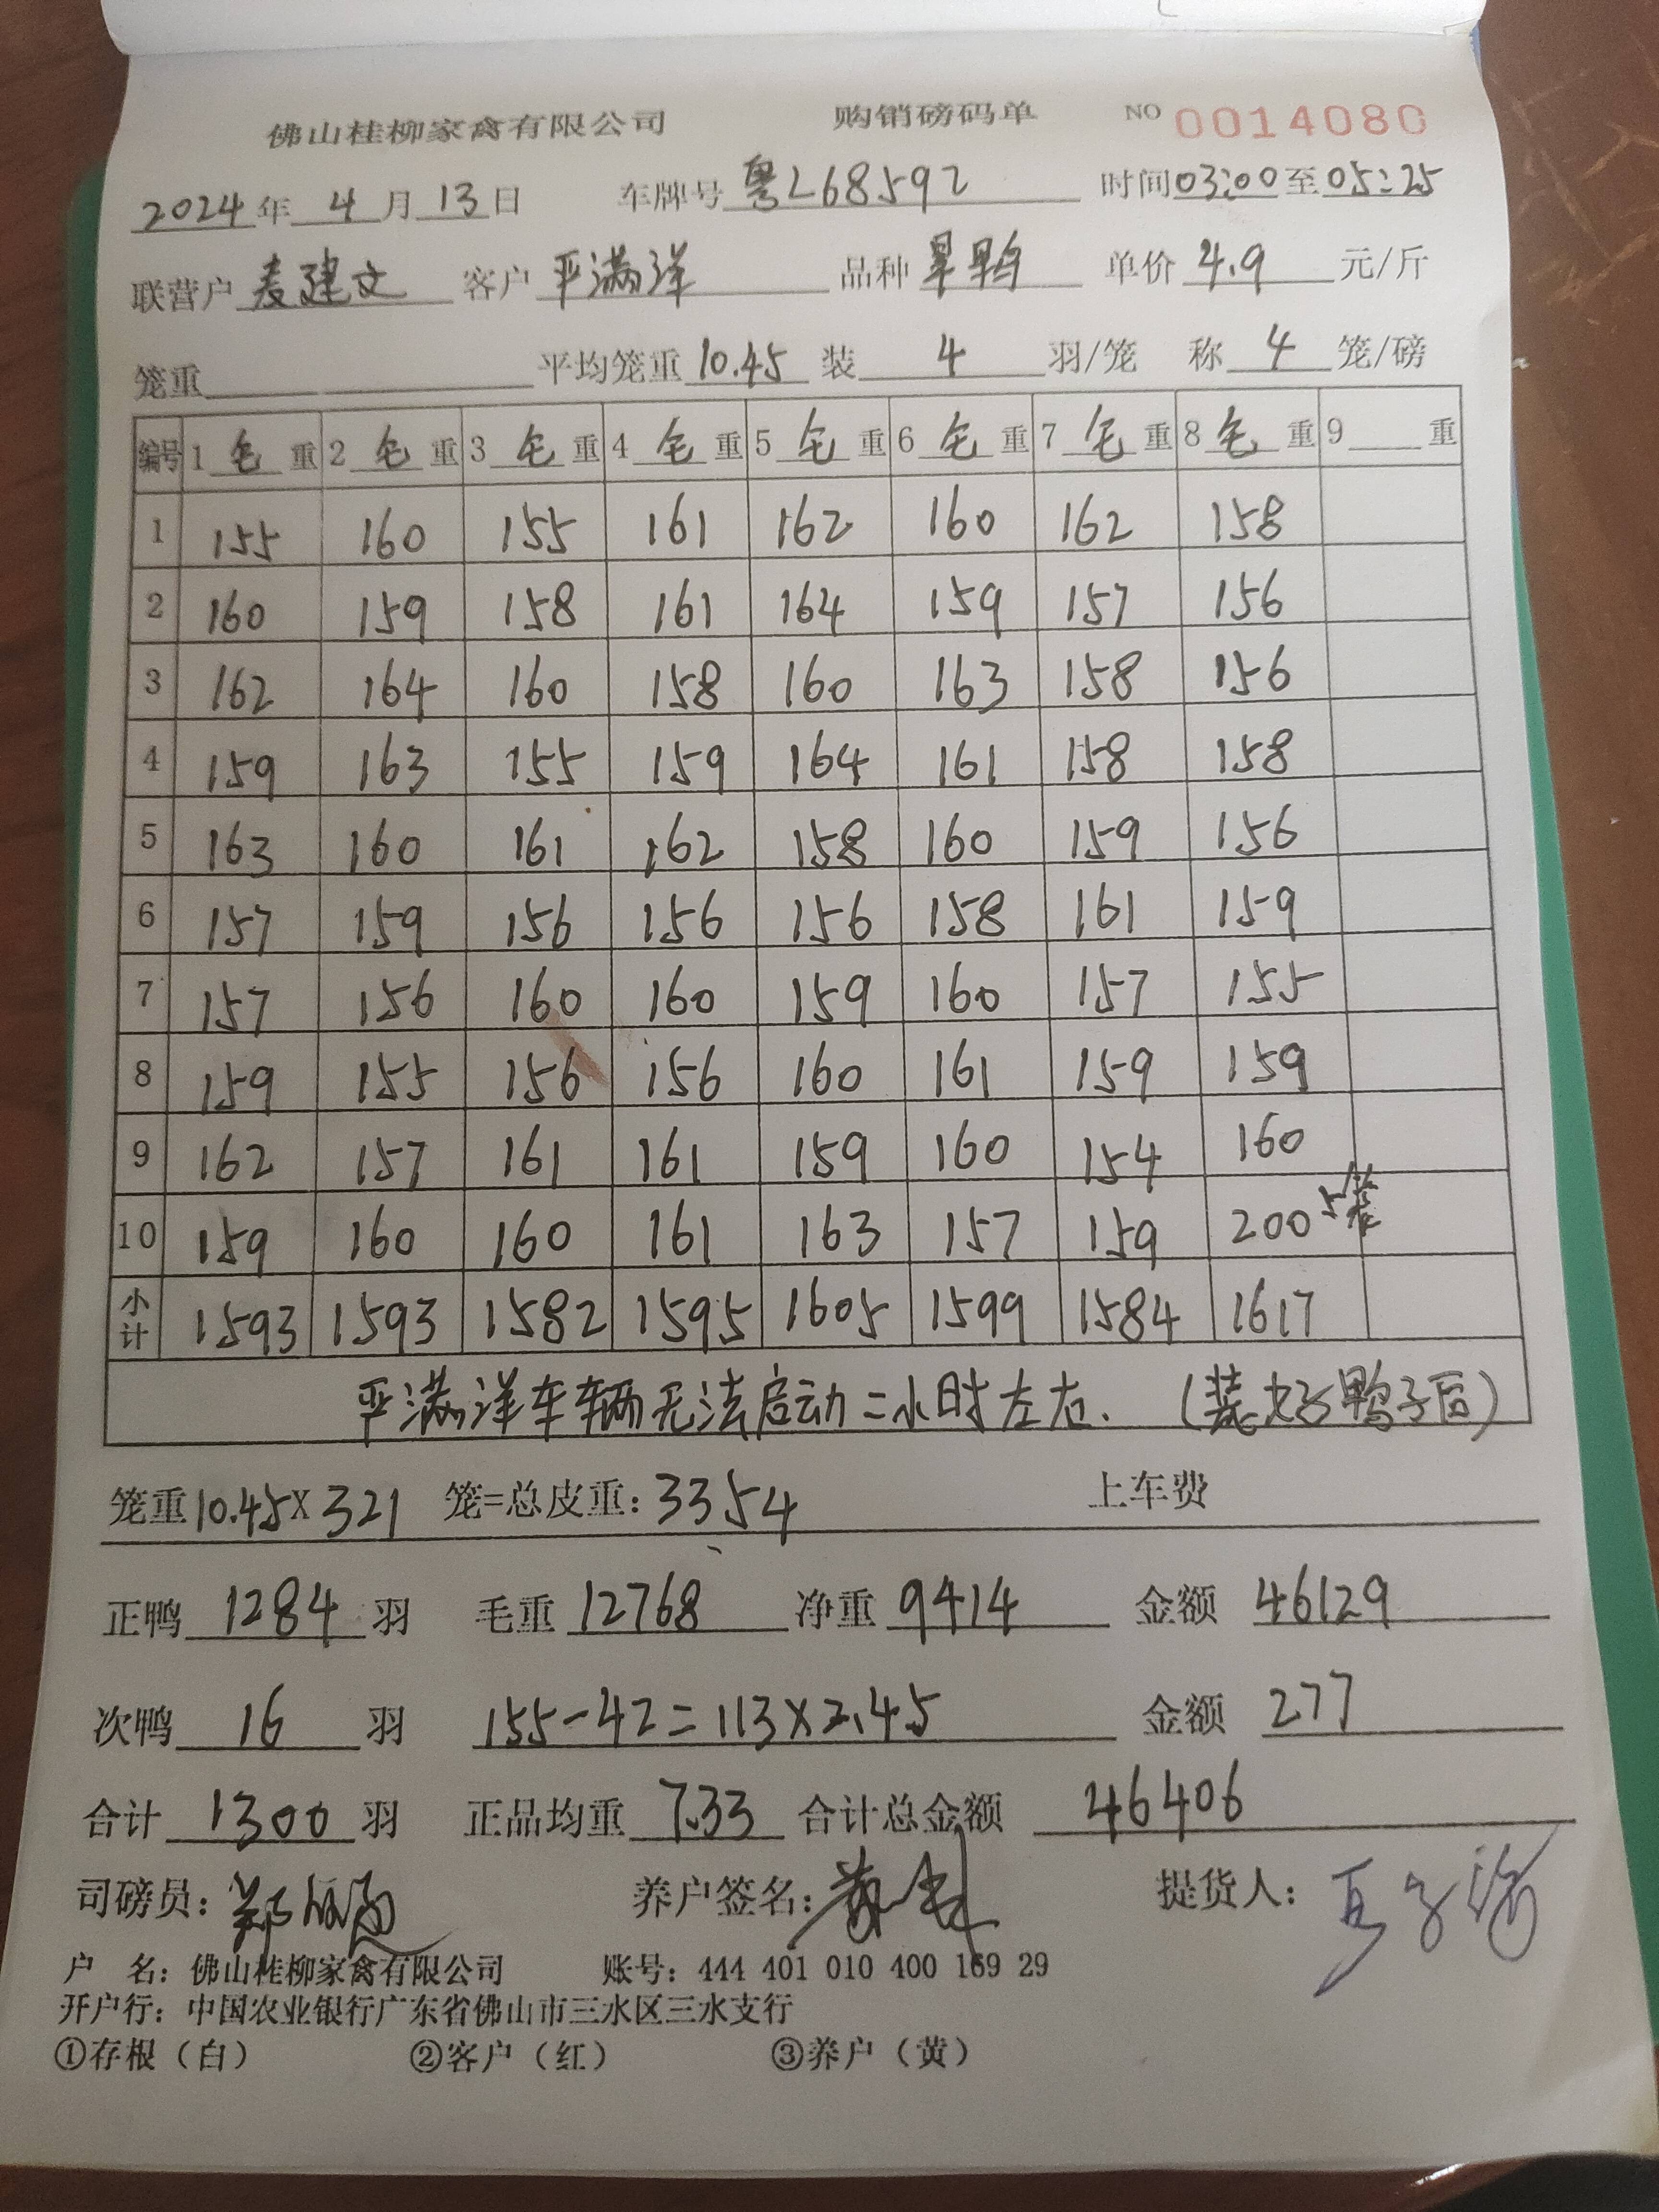 佛山桂柳家禽有限公司 购销磅码单 NO 0014080
2024年 4月13日 车牌号 粤L68592 时间03:00至05:25
联营户 麦建文 客户 严满洋 品种 旱鸭 单价 4.9 元/斤
笼重 平均笼重 10.45 装 4 羽/笼 称 4 笼/磅
编号 1 毛 重 2 毛 重 3 毛 重 4 毛 重 5 毛 重 6 毛 重 7 毛 重 8 毛 重 9 重
1 155 160 155 161 162 160 162 158
2 160 159 158 161 164 159 157 156
3 162 164 160 158 160 163 158 156
4 159 163 155 159 164 161 158 158
5 163 160 161 162 158 160 159 156
6 157 159 156 156 156 158 161 159
7 157 156 160 160 159 160 157 155
8 159 155 156 156 160 161 159 159
9 162 157 161 161 159 160 154 160
10 159 160 160 161 163 157 159 200 5笼
小计 1593 1593 1582 1595 1605 1599 1584 1617
严满洋车辆无法启动二小时左右.（装好鸭子后）
笼重10.45X 321 笼=总皮重: 3354 上车费
正鸭 1284 羽 毛重 12768 净重 9414 金额 46129
次鸭 16 羽 155-42=113×2.45 金额 277
合计 1300 羽 正品均重 7.33 合计总金额 46406
司磅员: 养户签名: 提货人:
户 名: 佛山桂柳家禽有限公司 账号: 444 401 010 400 169 29
开户行: 中国农业银行广东省佛山市三水区三水支行
①存根（白） ②客户（红） ③养户（黄）